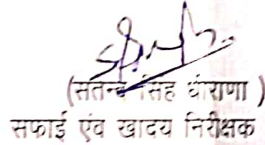 (सतेन्द्र सिंह धीराणा )
सफाई एंव खादय निरीक्षक